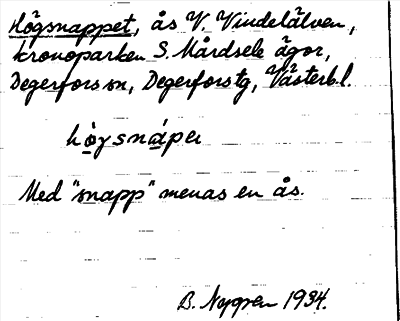 Högsnappet, ås V. Vindelälven,
kronoparken S. Mårdsele ägor,
Degerfors sn, Degerfors tg, Västerb.l.
högsnaper
Med "snapp" menas en ås.
B. Nygren 1934.